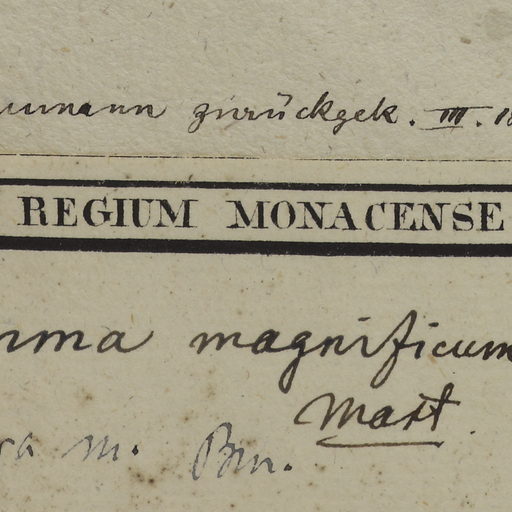 zurückgek. III. 18
REGIUM MONACENSE
magnificum
Mart.
m. Bm.